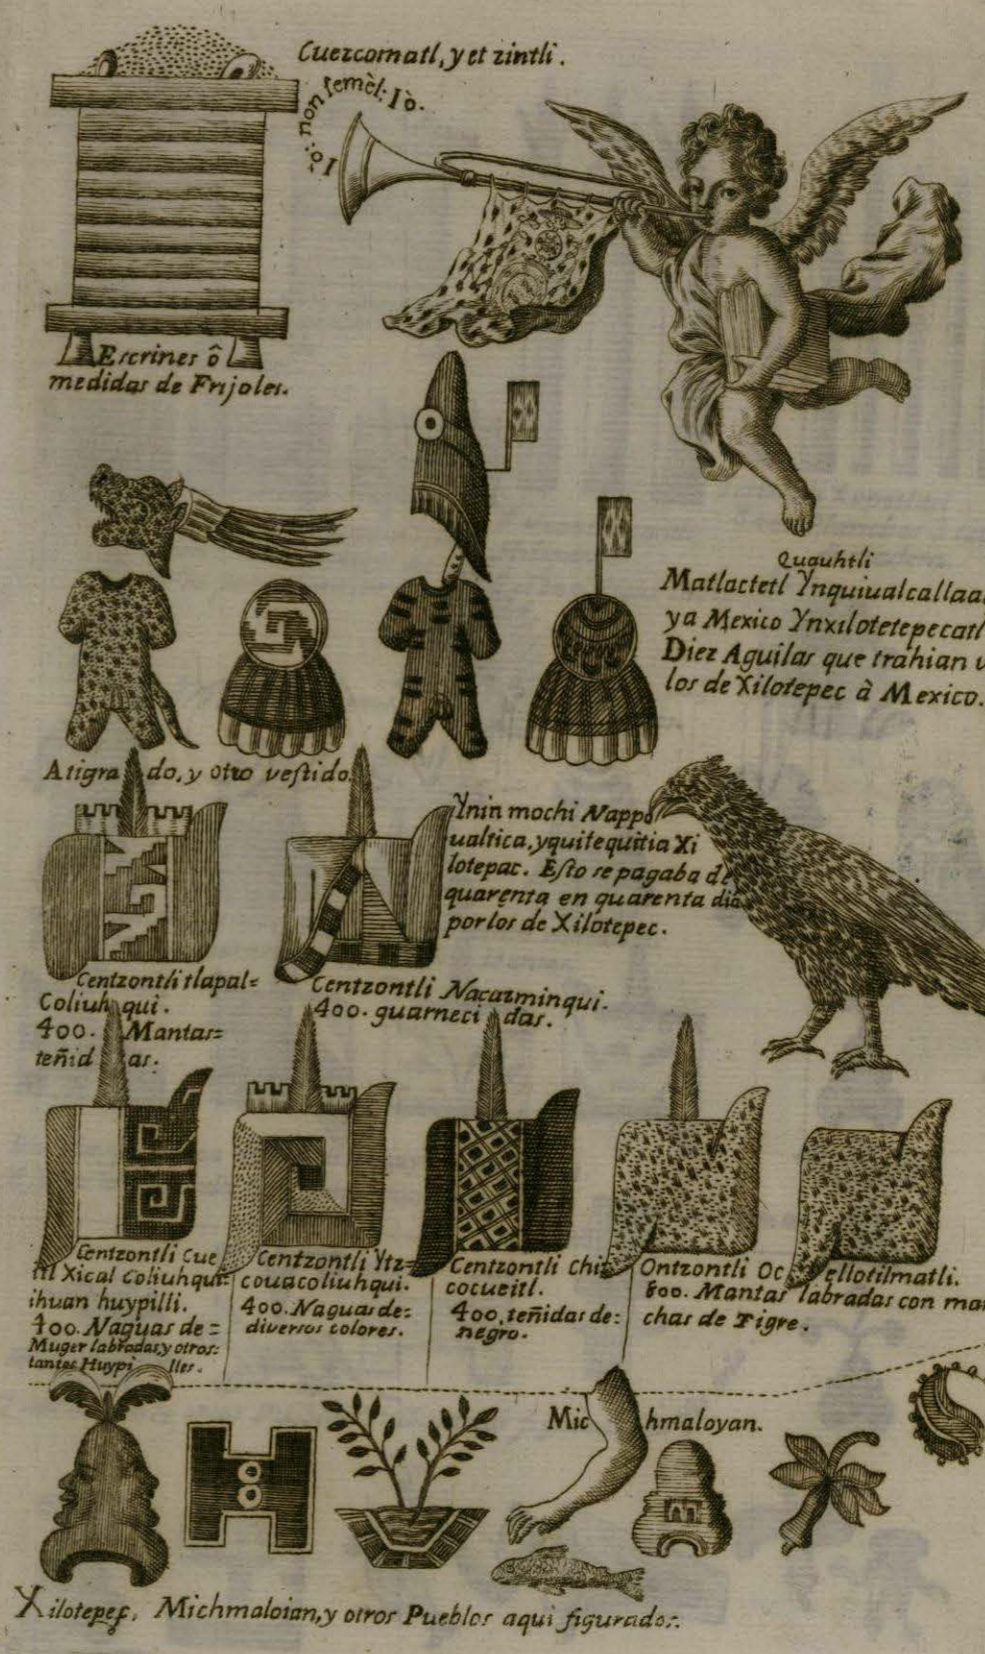 Cuezcomatl, y et zintli.
Io: non semèl: Iò.
Escrines ô
medidas de Frijoles.
Quauhtli
Matlactetl Ynquiualcallaa
ya Mexico Ynxilotetepecatl
Diez Aguilas que trahian
los de Xilotepec à Mexico.
Atigrado, y otro vestido.
Ynin mochi Nappo
ualtica, yquitequitia Xi
lotepac. Esto se pagaba de
quarenta en quarenta dia
por los de Xilotepec.
Centzontli tlapal=
Coliuhqui.
400. Mantas=
teñidas.
Centzontli Nacazminqui.
400. guarnecidas.
Centzontli Cue
itl Xical Coliuhqui=
ihuan huypilli.
400. Naguas de=
Muger labradas, y otros:
tantos Huypilles.
Centzontli Ytz=
couacoliuhqui.
400. Naguas de:
diversos colores.
Centzontli chil
cocueitl.
400, teñidas de:
negro.
Ontzontli Ocellotilmatli.
800. Mantas labradas con man
chas de Tigre.
Michmaloyan.
Xilotepec, Michmaloian, y otros Pueblos aqui figurados:.